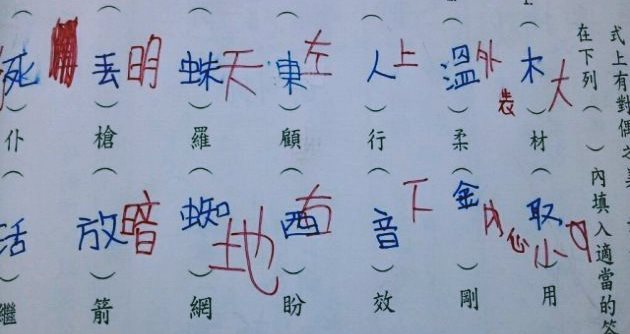 式上有對偶之
在下列（ ）內填入適當的答
（木大）材（取小）用
（溫外表）柔（金內心）剛
（人上）行（音下）效
（東左）顧（西右）盼
（蛛天）羅（蜘地）網
（丟明）槍（放暗）箭
（死）仆（活）繼